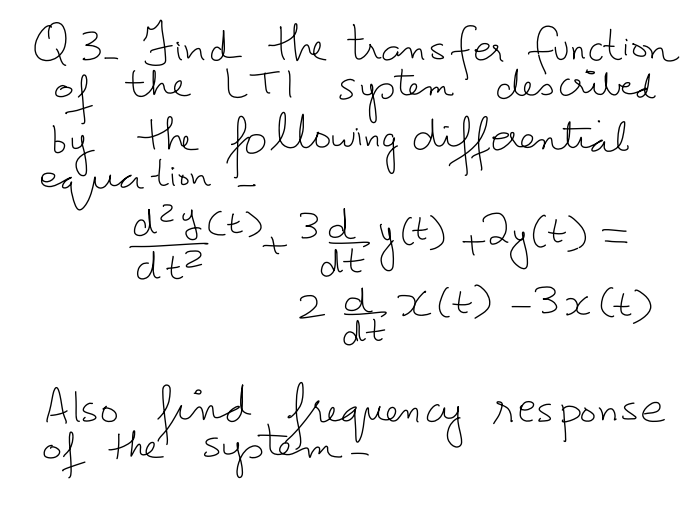 Q3- Find the transfer function
of the LTI system described
by the following differential
equation -
d²y(t)/dt² + 3 d/dt y(t) + 2y(t) =
2 d/dt x(t) - 3x(t)
Also find frequency response
of the system -